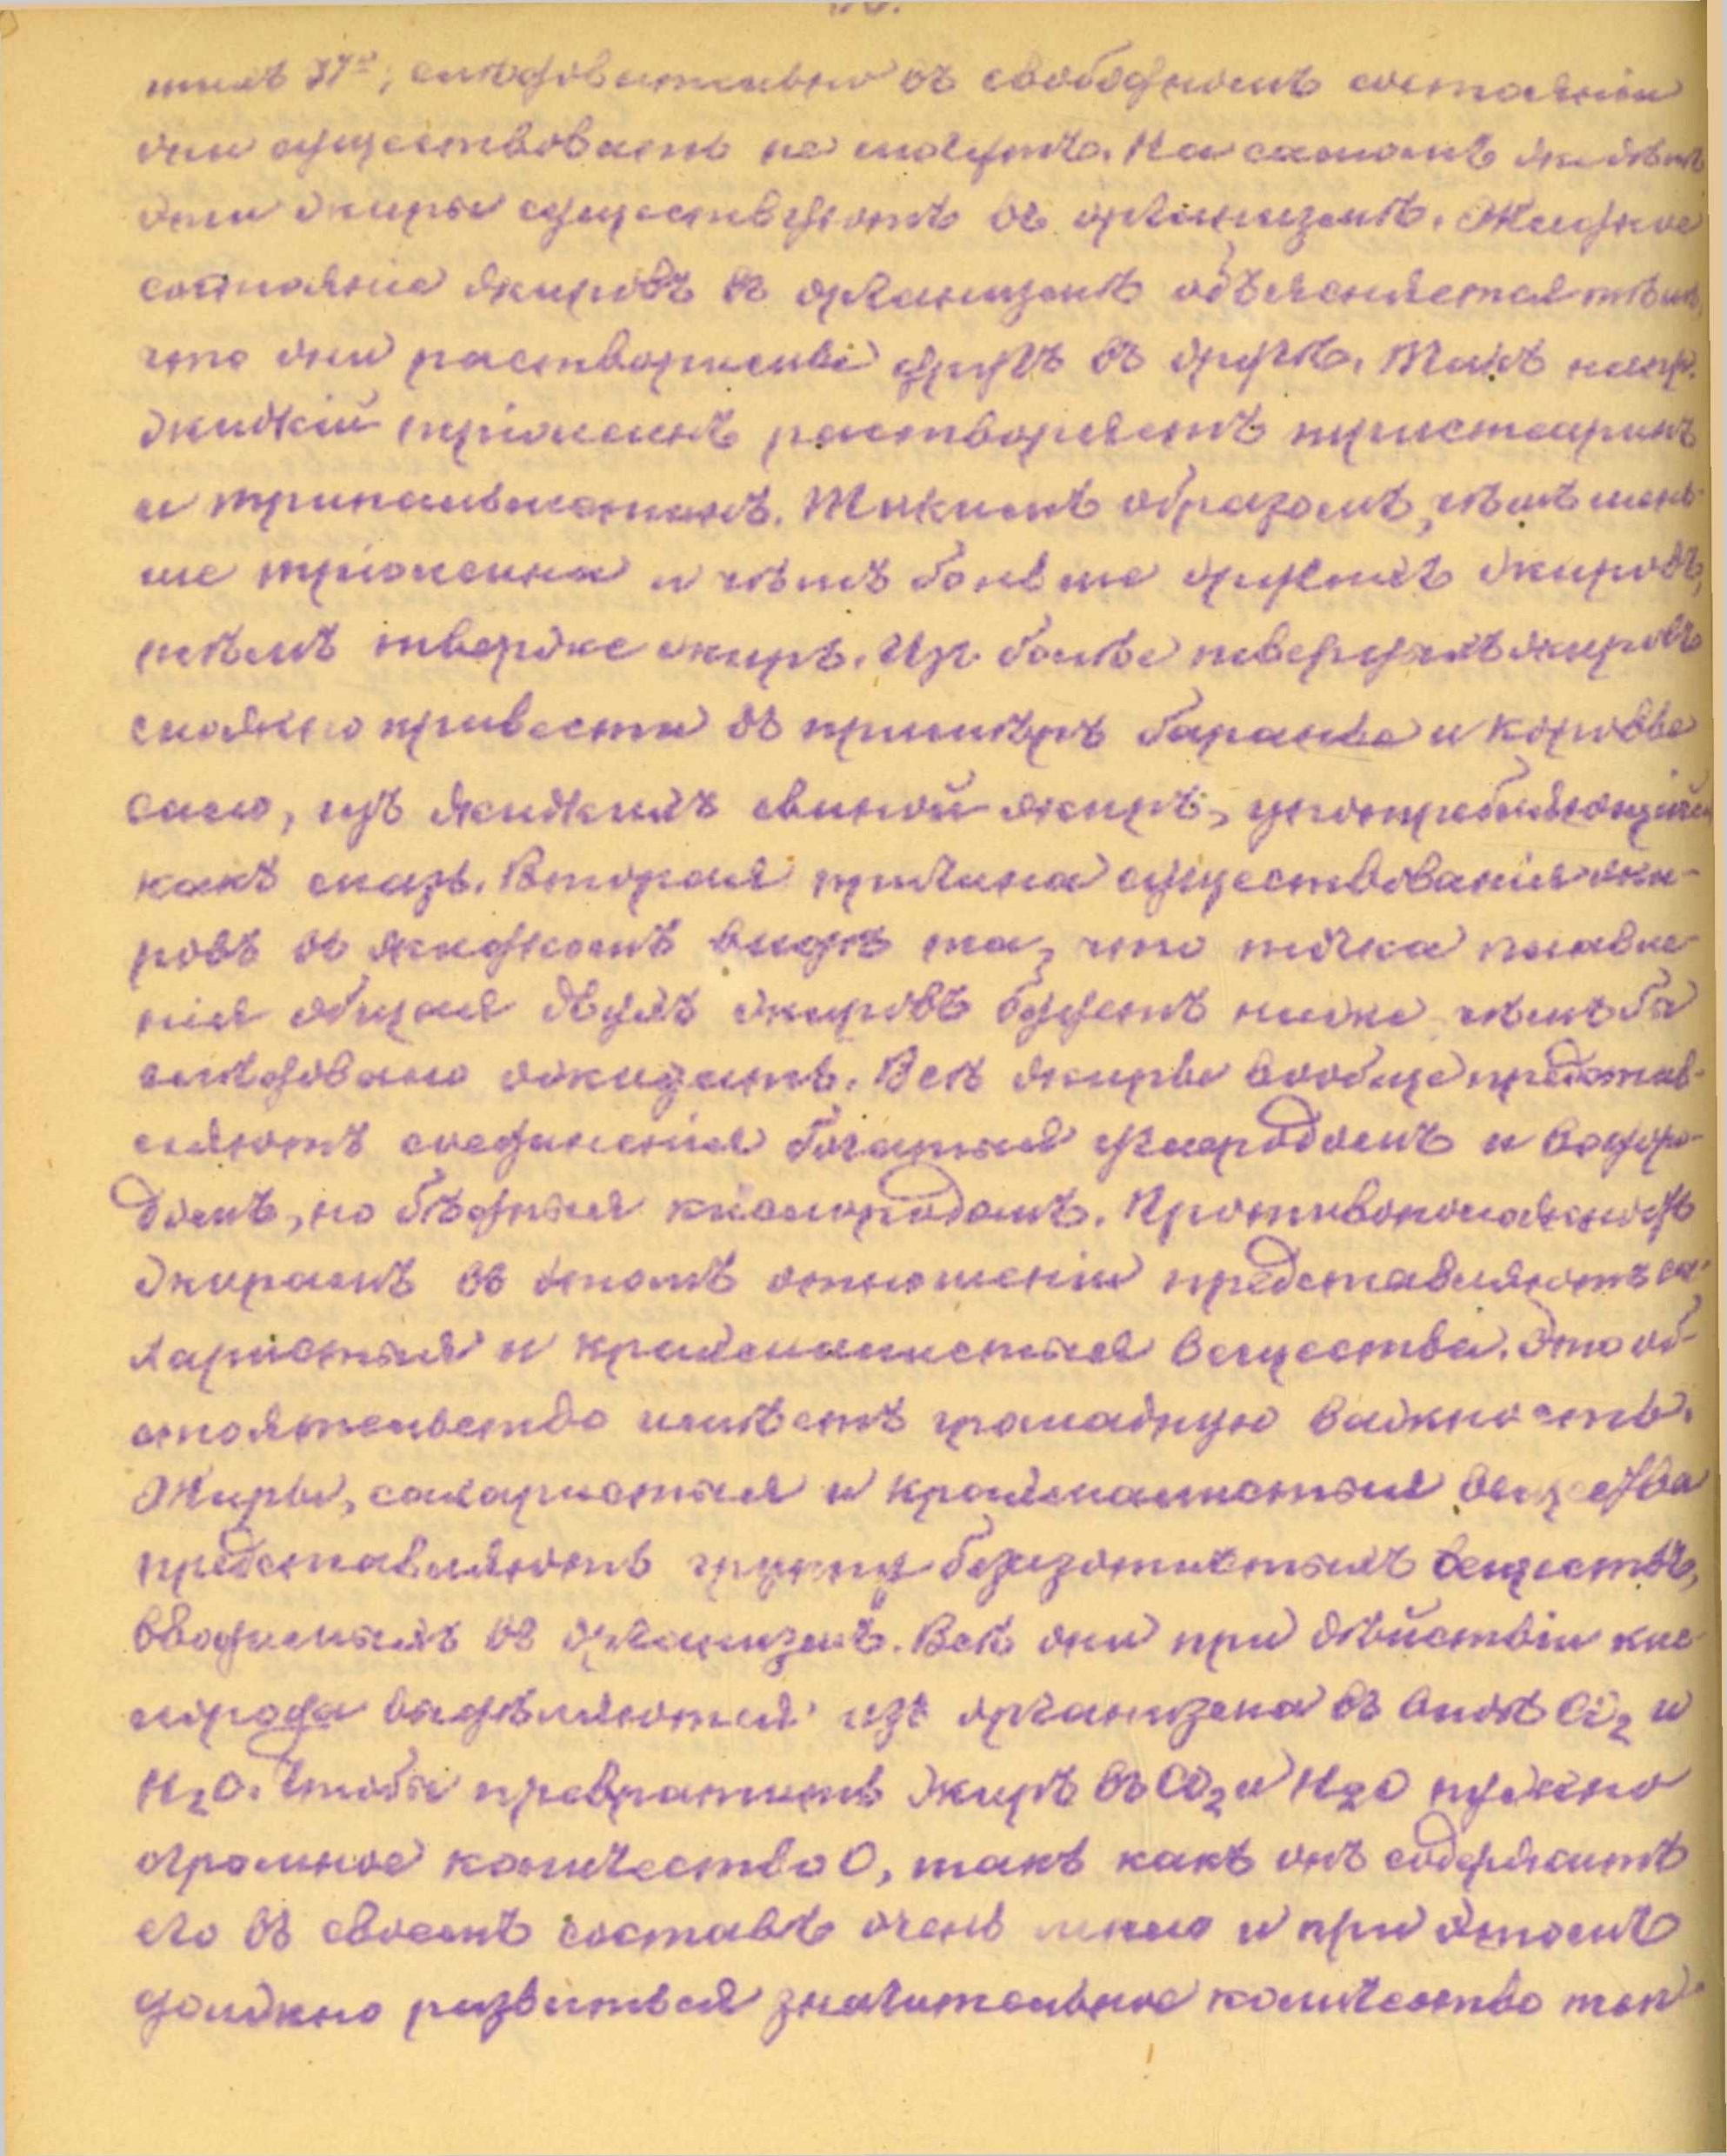 слѣдовательно въ свободномъ состояніи
они существовать не могутъ. На самомъ же дѣлѣ
эти жиры существуютъ въ организмѣ. Жидкое
состояніе жировъ въ организмѣ объясняется тѣмъ,
что они растворимы другъ въ другѣ. Такъ напр.
жидкій тріолеинъ растворяетъ тристеаринъ
и трипальмитинъ. Такимъ образомъ, чѣмъ мень-
ше тріолеина и чѣмъ больше другихъ жировъ,
тѣмъ тверже жиръ. Изъ болѣе твердыхъ жировъ
можно привести въ примѣръ баранье и коровье
сало, изъ жидкихъ свиной жиръ, употребляющійся
какъ мазь. Вторая причина существованія жи-
ровъ въ жидкомъ видѣ та, что точка плавле-
нія общая двухъ жировъ будетъ ниже, чѣмъ бы
слѣдовало ожидать. Всѣ жиры вообще представ-
ляютъ соединенія богатыя углеродомъ и водоро-
домъ, но бѣдныя кислородомъ. Противоположность
жирамъ въ этомъ отношеніи представляютъ са-
харистыя и крахмалистыя вещества. Это об-
стоятельство имѣетъ громадную важность.
Жиры, сахаристыя и крахмалистыя вещества
представляютъ группу безазотистыхъ веществъ,
вводимыхъ въ организмъ. Всѣ они при дѣйствіи кис-
лорода выдѣляются изъ организма въ видѣ CO₂ и
H₂O. Чтобы превратить жиръ въ CO₂ и H₂O нужно
огромное количество O, такъ какъ онъ содержитъ
его въ своемъ составѣ очень мало и при этомъ
должно развиться значительное количество теп-